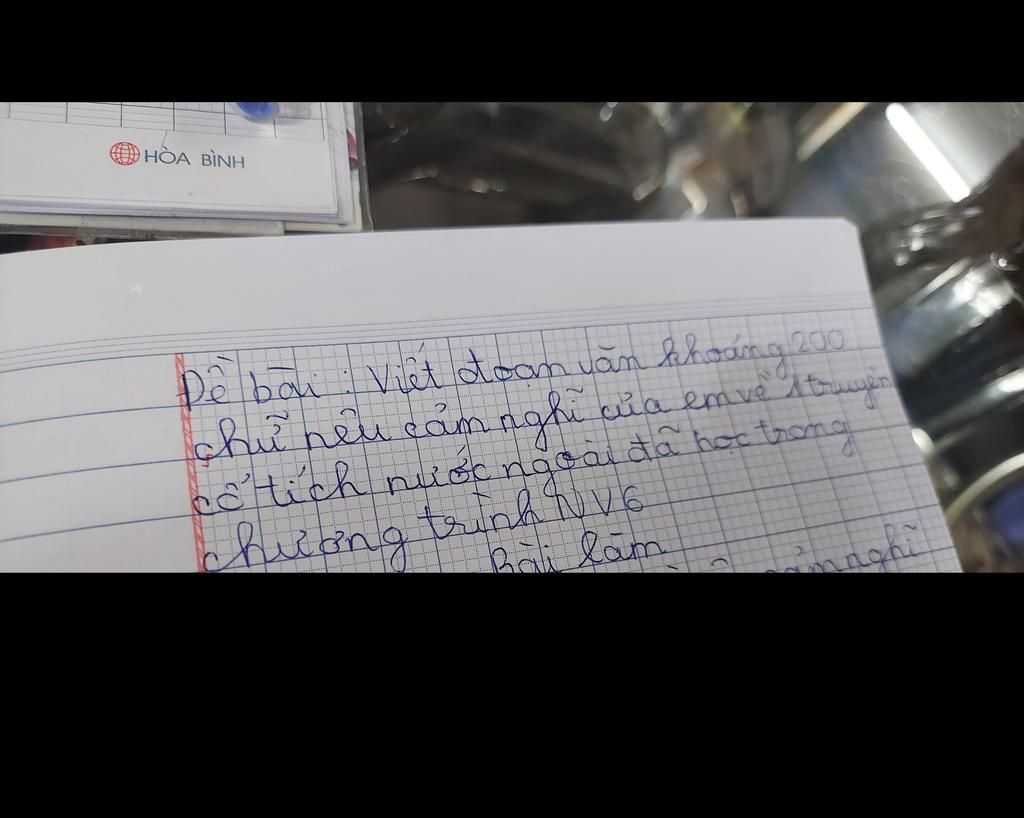 HÒA BÌNH
Đề bài : Viết đoạn văn khoảng 200
chữ nêu cảm nghĩ của em về 1 truyện
cổ tích nước ngoài đã học trong
chương trình NV6
Bài làm
cảm nghĩ